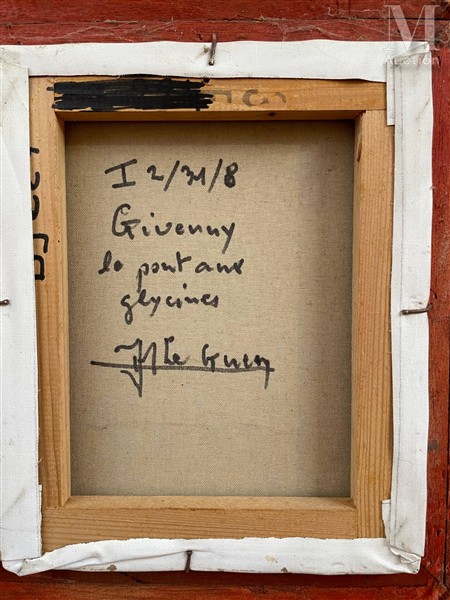 M
Auction
I 2/31/8
Giverny
le pont aux
glycines
Le Guen